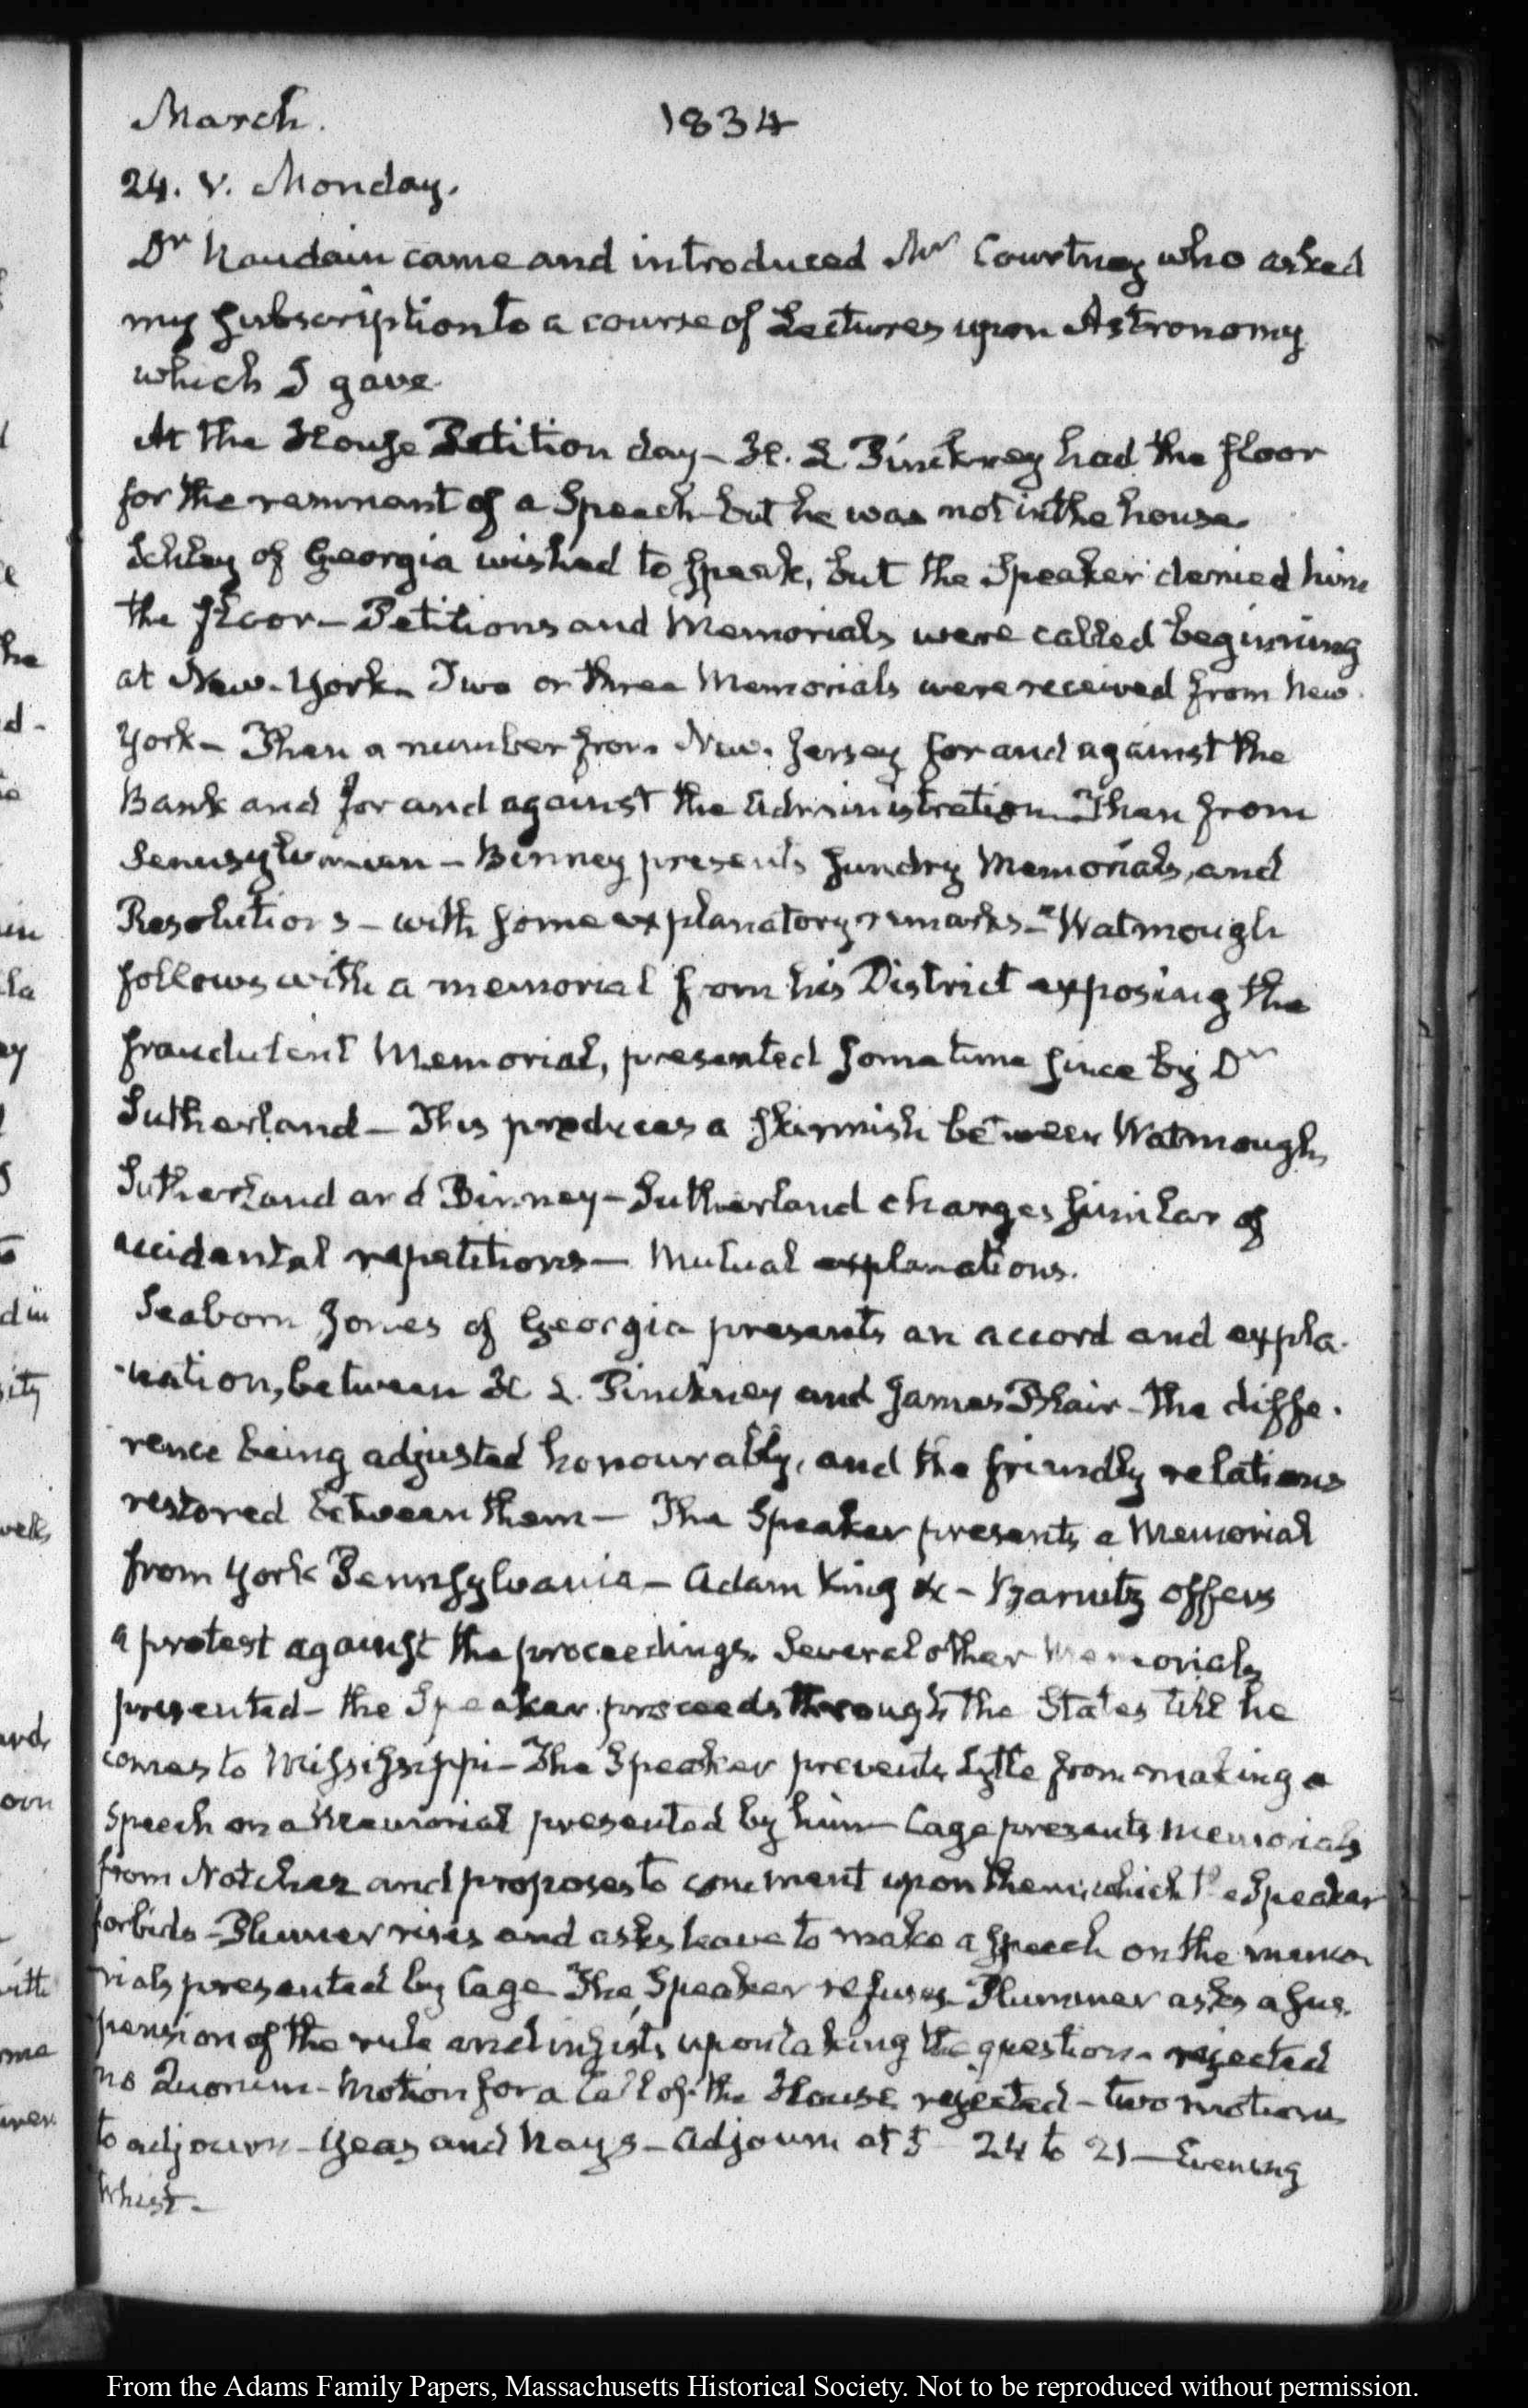 March. 1834
24. V. Monday.
Dr Naudain came and introduced Mr Courtney who asked
my subscription to a course of Lectures upon Astronomy
which I gave.
At the House Petition day – H. L Pinckney had the floor
for the remnant of a Speech but he was not in the house.
Schley of Georgia wished to speak, but the Speaker denied him
the floor – Petitions and Memorials were called beginning
at New-York – Two or three Memorials were received from New
York – Then a number from New. Jersey for and against the
Bank and for and against the Administration – Then from
– Binney presents sundry Memorials, and
Resolutions – with some explanatory remarks – Watmough
follows with a memorial from his District exposing the
fraudulent Memorial, presented some time since by Dr
Sutherland – This produces a skirmish between Watmough,
Sutherland and Binney – Sutherland charges similar of
accidental repetitions – Mutual explanations.
Seaborn Jones of Georgia presents an accord and expla-
-nation, between H. L. Pinckney and James Blair – the diffe-
rence being adjusted honourably, and the friendly relations
restored between them – The Speaker presents a Memorial
from York Pennsylvania – Adam King &c – Barnitz offers
a protest against the proceedings. Several other Memorials
presented – the Speaker proceeds through the States till he
comes to Mississippi – The Speaker prevents Lytle from making a
Speech on a Memorial presented by him – Cage presents Memorials
from Natchez and proposes to comment upon them, which the Speaker
forbids – Plummer rises and asks leave to make a speech on the memo-
rials presented by Cage The Speaker refuses – Plummer asks a sus-
pension of the rule and insists upon taking the question – rejected
no Quorum – Motion for a Call of the House rejected – two motions
to adjourn – Yeas and Nays – Adjourn at 5 24 to 21 – Evening
Whist –
From the Adams Family Papers, Massachusetts Historical Society. Not to be reproduced without permission.